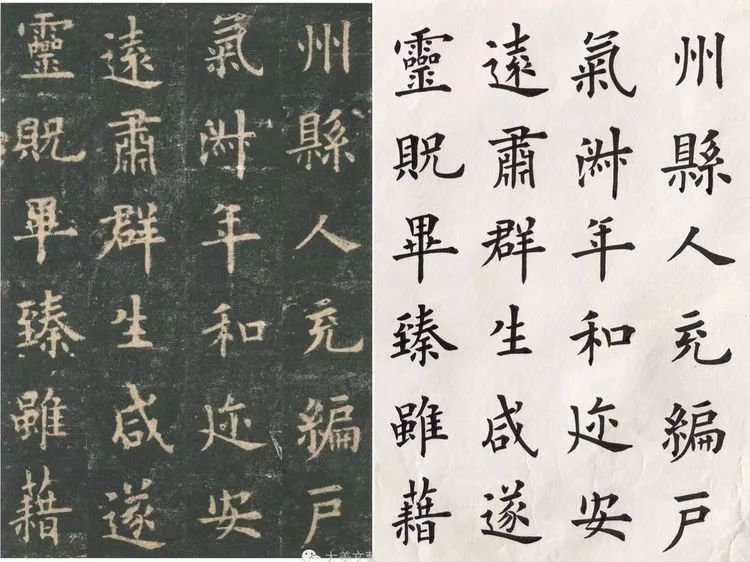 州縣人充編戶
氣淑年和迩安
遠肅群生咸遂
靈貺畢臻雖藉
州縣人充編戶
氣淑年和迩安
遠肅群生咸遂
靈貺畢臻雖藉